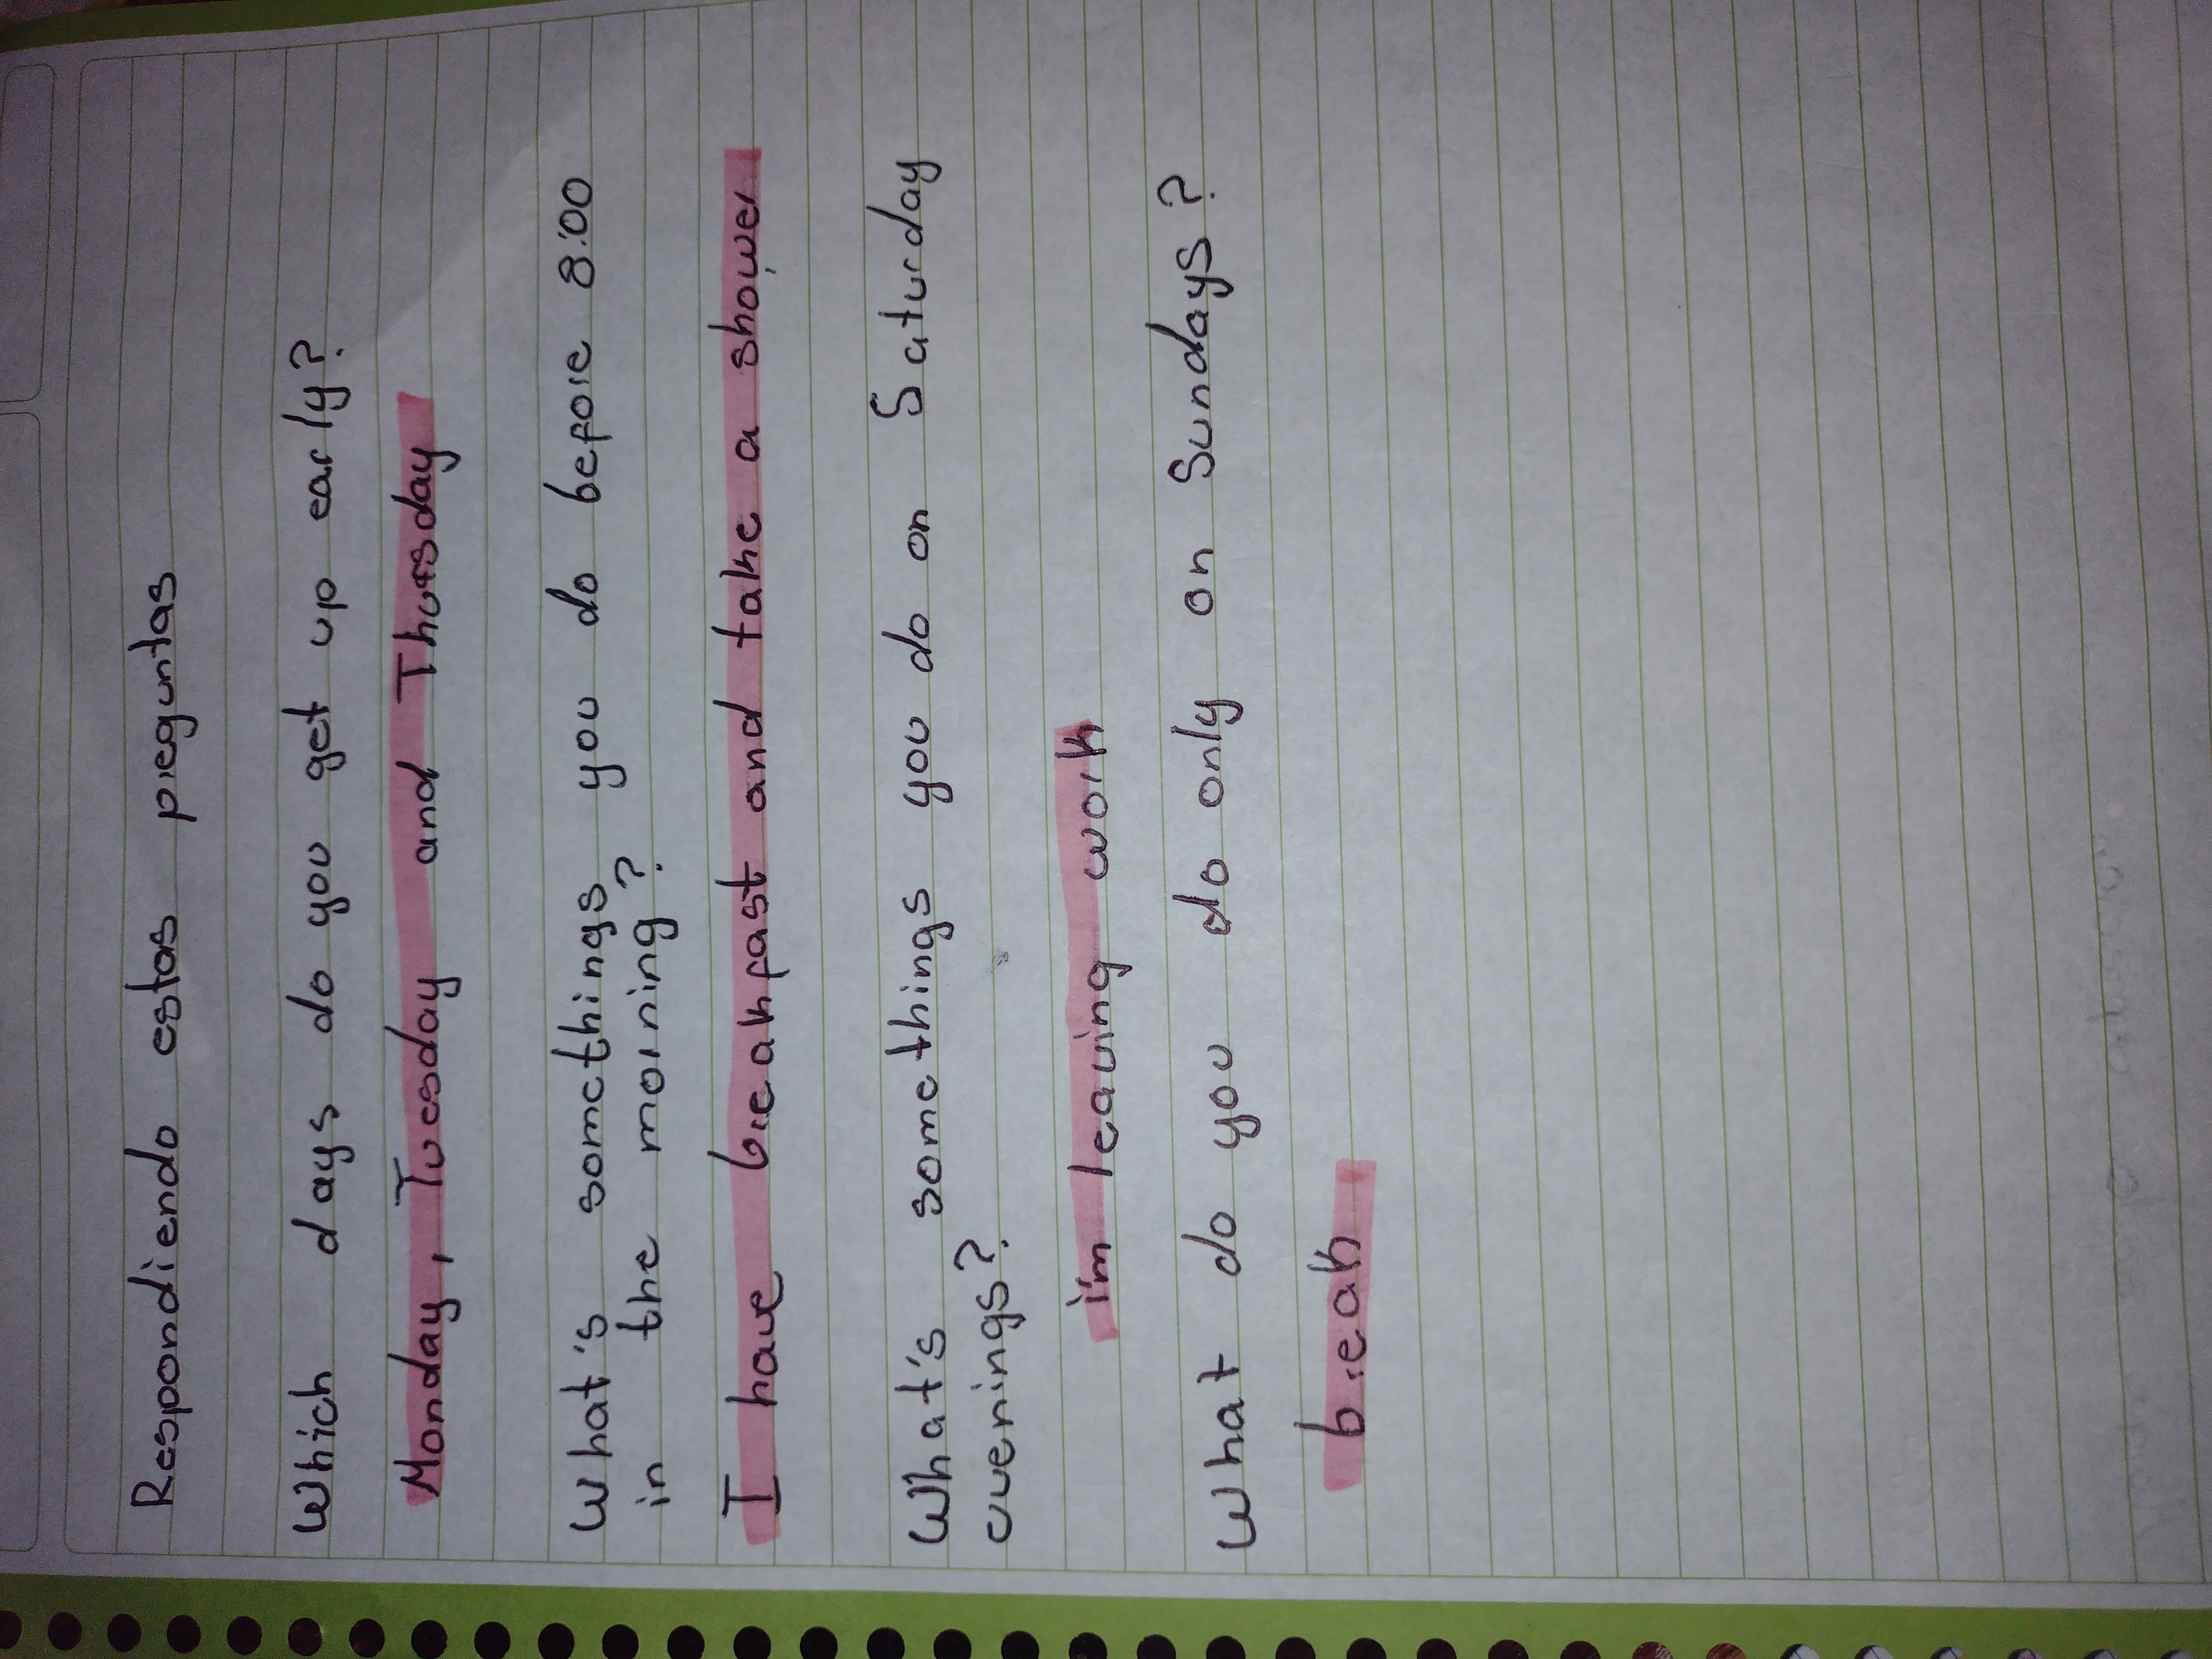 Respondiendo estas preguntas
Which days do you get up early?
Monday, Tuesday and Thursday
What's somethings you do before 8:00
in the morning?
I have breakfast and take a shower
What's somethings you do on Saturday
evenings?
i'm leaving work
What do you do only on Sundays?
break